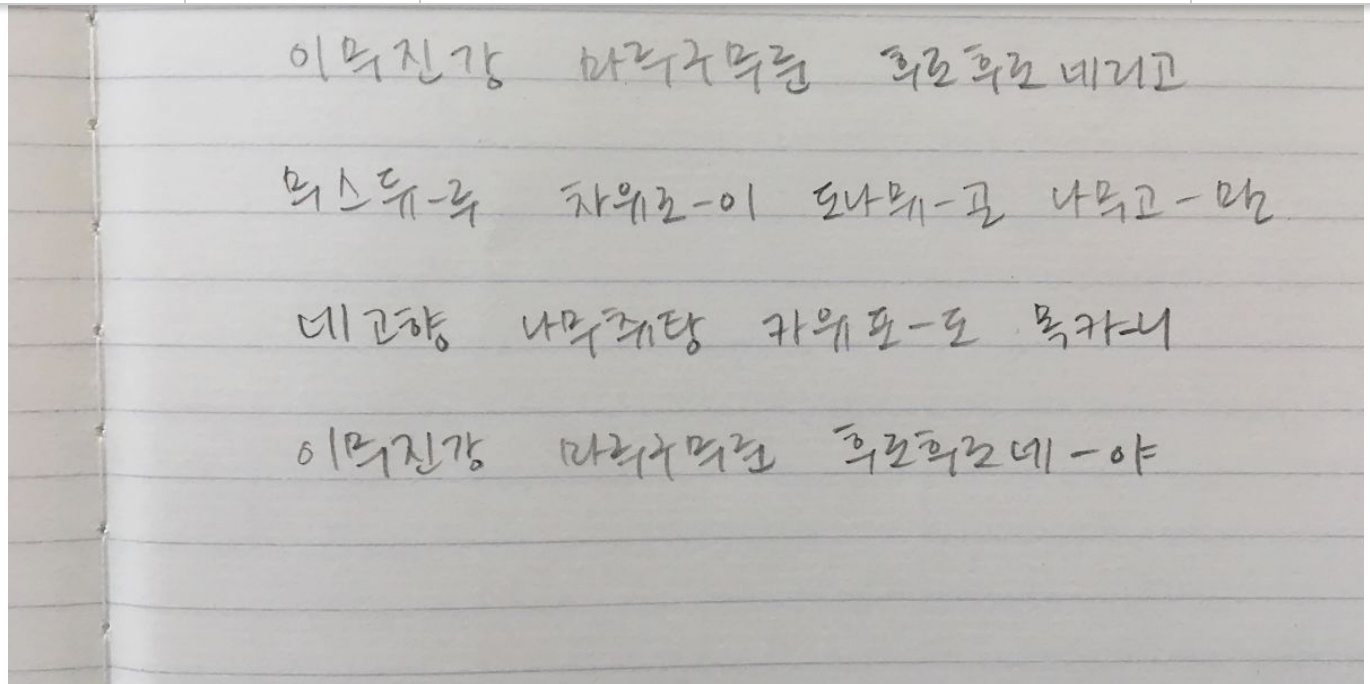 이무진강 마루구무룬 흐로흐로 네리고
믜스듀-루 자위로-이 도나뮈-골 나무고-만
네고향 나무쥐탕 카위포-도 목카니
이무진강 마루구무룬 흐로흐로네-야